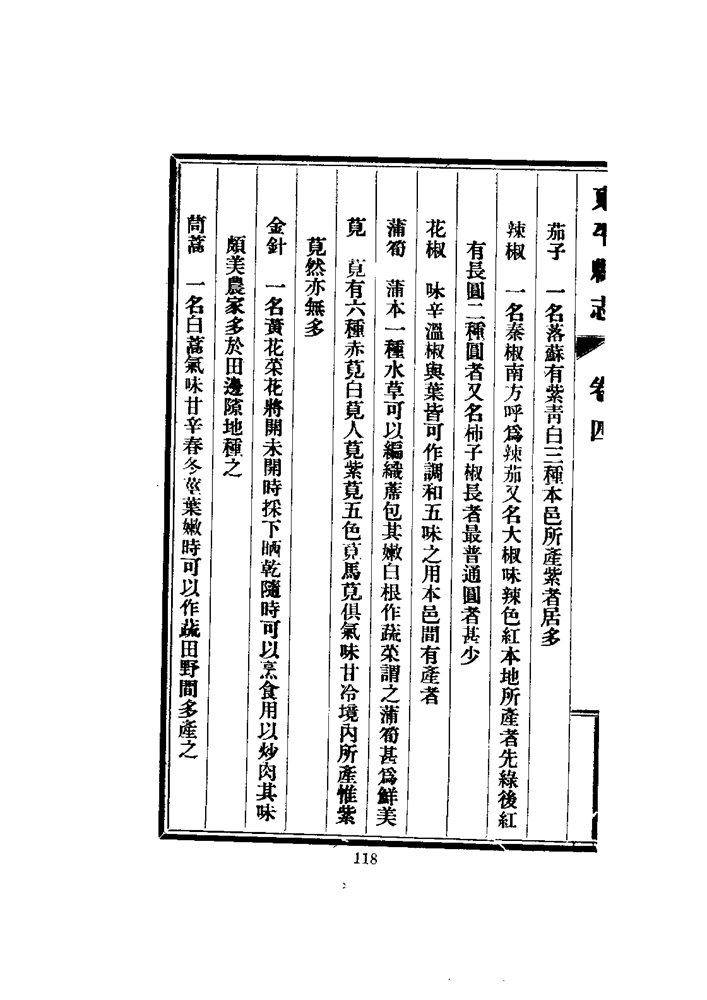 東平縣志 卷四
茄子 一名落蘇有紫靑白三種本邑所產紫者居多
辣椒 一名秦椒南方呼爲辣茄又名大椒味辣色紅本地所產者先綠後紅
有長圓二種圓者又名柿子椒長者最普通圓者甚少
花椒 味辛溫椒與葉皆可作調和五味之用本邑間有產者
蒲筍 蒲本一種水草可以編織蓆包其嫩白根作蔬菜謂之蒲筍甚爲鮮美
莧 莧有六種赤莧白莧人莧紫莧五色莧馬莧俱氣味甘冷境內所產惟紫
莧然亦無多
金針 一名黃花菜花將開未開時採下晒乾隨時可以烹食用以炒肉其味
頗美農家多於田邊隙地種之
茼蒿 一名白蒿氣味甘辛春冬莖葉嫩時可以作蔬田野間多產之
118